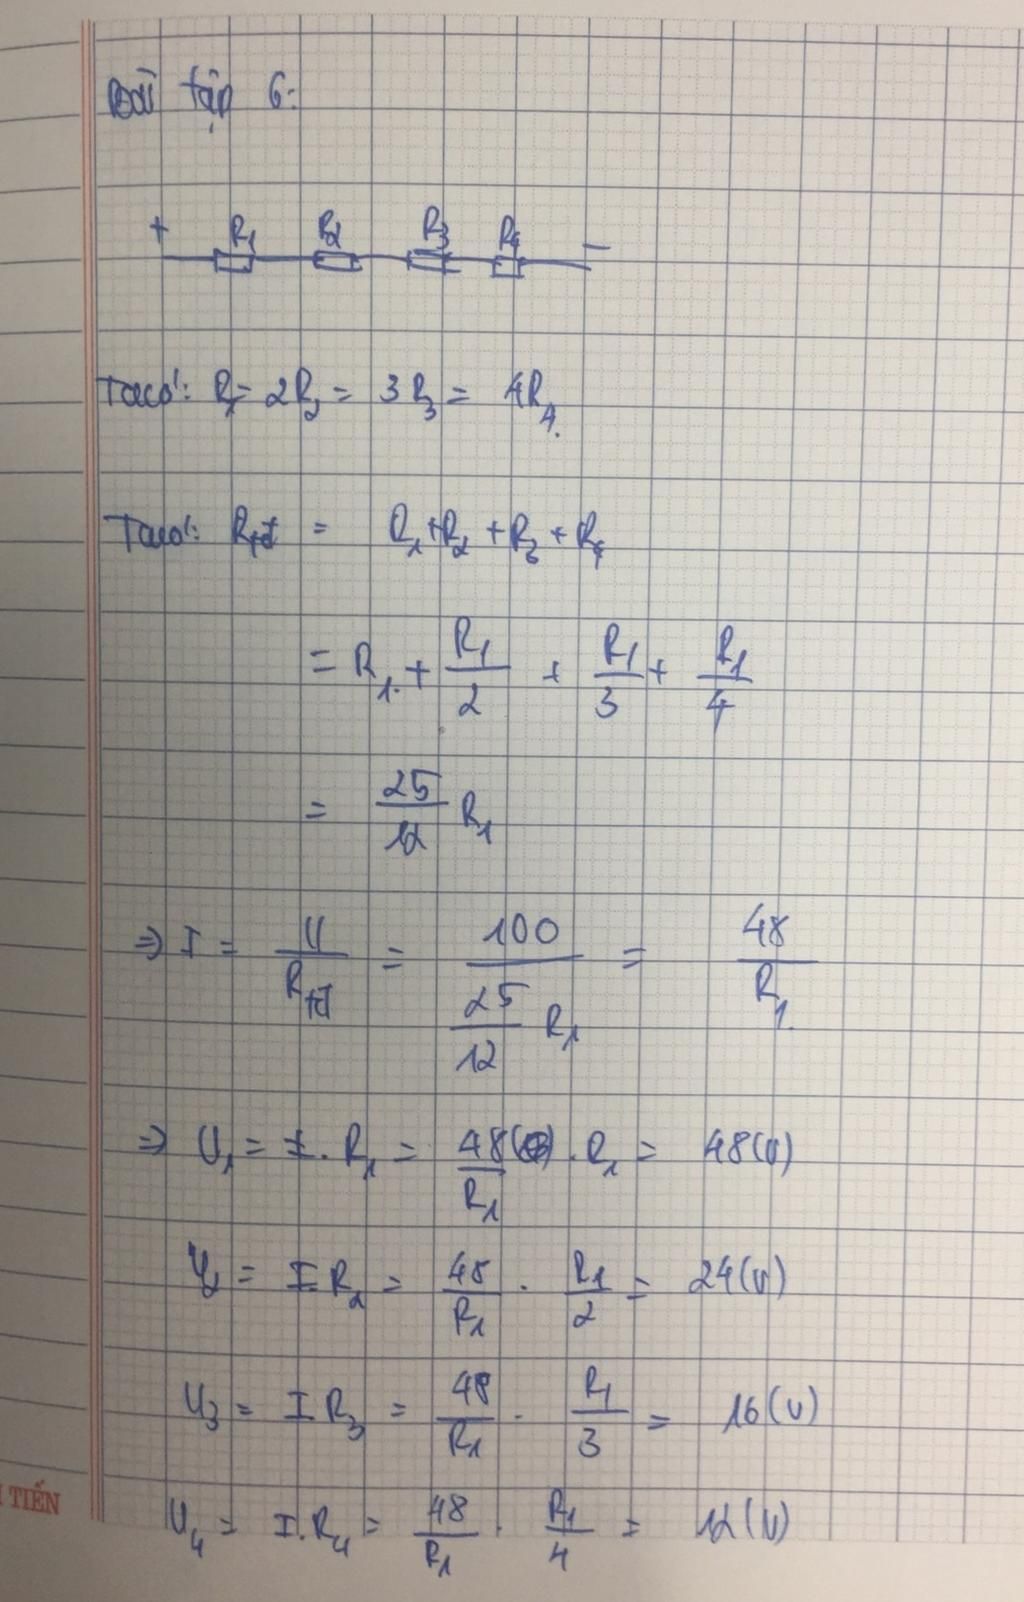 Bài tập 6:
+ R1 R2 R3 R4 -
Ta có: R1 = 2R2 = 3R3 = 4R4.
Ta có: Rtđ = R1 + R2 + R3 + R4
= R1 + R1/2 + R1/3 + R1/4
= 25/12 R1
⇒ I = U/Rtđ = 100/(25/12 R1) = 48/R1
⇒ U1 = I . R1 = 48/R1 . R1 = 48 (V)
U2 = I . R2 = 48/R1 . R1/2 = 24 (V)
U3 = I R3 = 48/R1 . R1/3 = 16 (V)
U4 = I . R4 = 48/R1 . R1/4 = 12 (V)
TIẾN